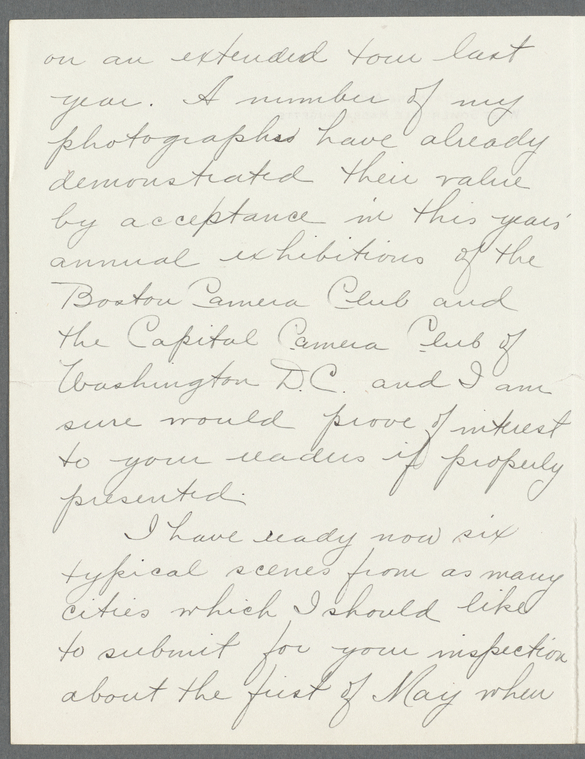 on an extended tour last
year. A number of my
photographs have already
demonstrated their value
by acceptance in this years'
annual exhibitions of the
Boston Camera Club and
the Capital Camera Club of
Washington D.C. and I am
sure would prove of interest
to your readers if properly
presented.
I have ready now six
typical scenes from as many
cities which I should like
to submit for your inspection
about the first of May when